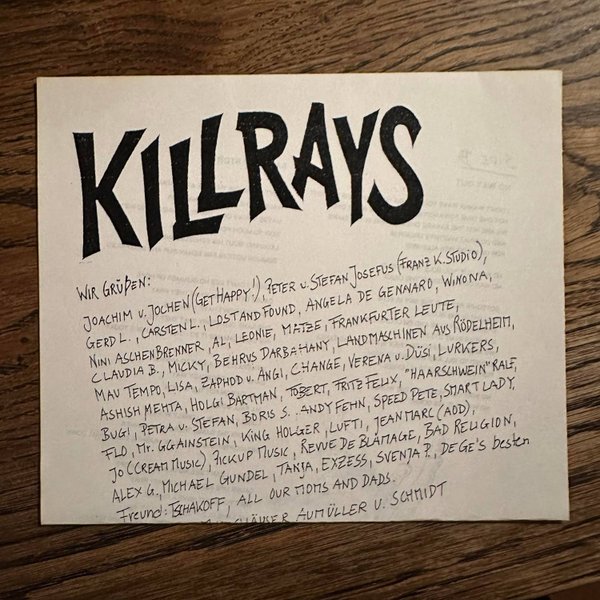 KILLRAYS
WIR GRÜßEN:
JOACHIM U. JOCHEN (GET HAPPY!), PETER U. STEFAN JOSEFUS (FRANZ K. STUDIO),
GERD L., CARSTEN L., LOST AND FOUND, ANGELA DE GENNARO, WINONA,
NINI ASCHENBRENNER, AL, LEONIE, MATZE, FRANKFURTER LEUTE,
CLAUDIA B., MICKY, BEHRUS DARBAHANY, LANDMASCHINEN AUS RÖDELHEIM,
MAU TEMPO, LISA, ZAPHOD U. ANGI, CHANGE, VERENA U. DÜSI, LURKERS,
ASHISH MEHTA, HOLGI BARTMAN, TOBERT, FRITZ FELIX, "HAARSCHWEIN" RALF,
BUGI, PETRA U. STEFAN, BORIS S., ANDY FEHN, SPEED PETE, SMART LADY,
FLO, MR. GGAINSTEIN, KING HOLGER, LUFTI, JEAN MARC (AOD),
JO (CREAM MUSIC), PICKUP MUSIC, REVUE DE BLAMAGE, BAD RELIGION,
ALEX G., MICHAEL GUNDEL, TANJA, EXZESS, SVENJA?, DEGE'S besten
Freund: TSCHAKOFF, ALL OUR MOMS AND DADS.
AUMÜLLER U. SCHMIDT